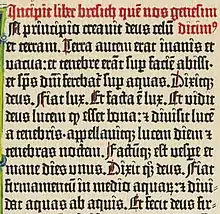 Incipit liber bresich quē nos genesim
A principio creavit deus celū dicimꝰ
et terram. Terra autem erat inanis et
vacua: et tenebre erāt sup faciē abissi:
et spūs dn̄i ferebat̄ sup aquas. Dixitq̄ꝫ
deus. Fiat lux. Et facta ē lux. Et vidit
deus lucem qꝫ esset bona: et divisit lucē
a tenebris. appellavitqꝫ lucem diem et
tenebras noctem. Factūqꝫ est vespe et
mane dies unus. Dixit qꝫ deus. Fiat
firmamentū in medio aquaꝝ: et divi-
dat aquas ab aquis. Et fecit deus fir-